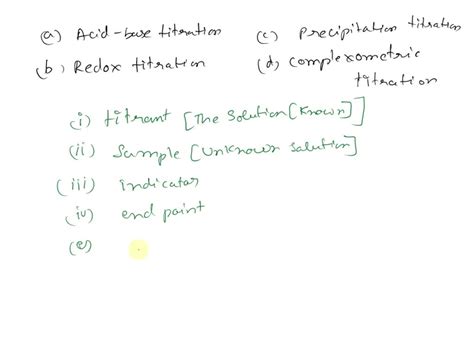 (a) Acid-base titration
(c) Precipitation titration
(b) Redox titration
(d) Complexometric titration
(i) titrant [The Solution [Known]]
(ii) Sample [Unknown Solution]
(iii) indicator
(iv) end point
(e)